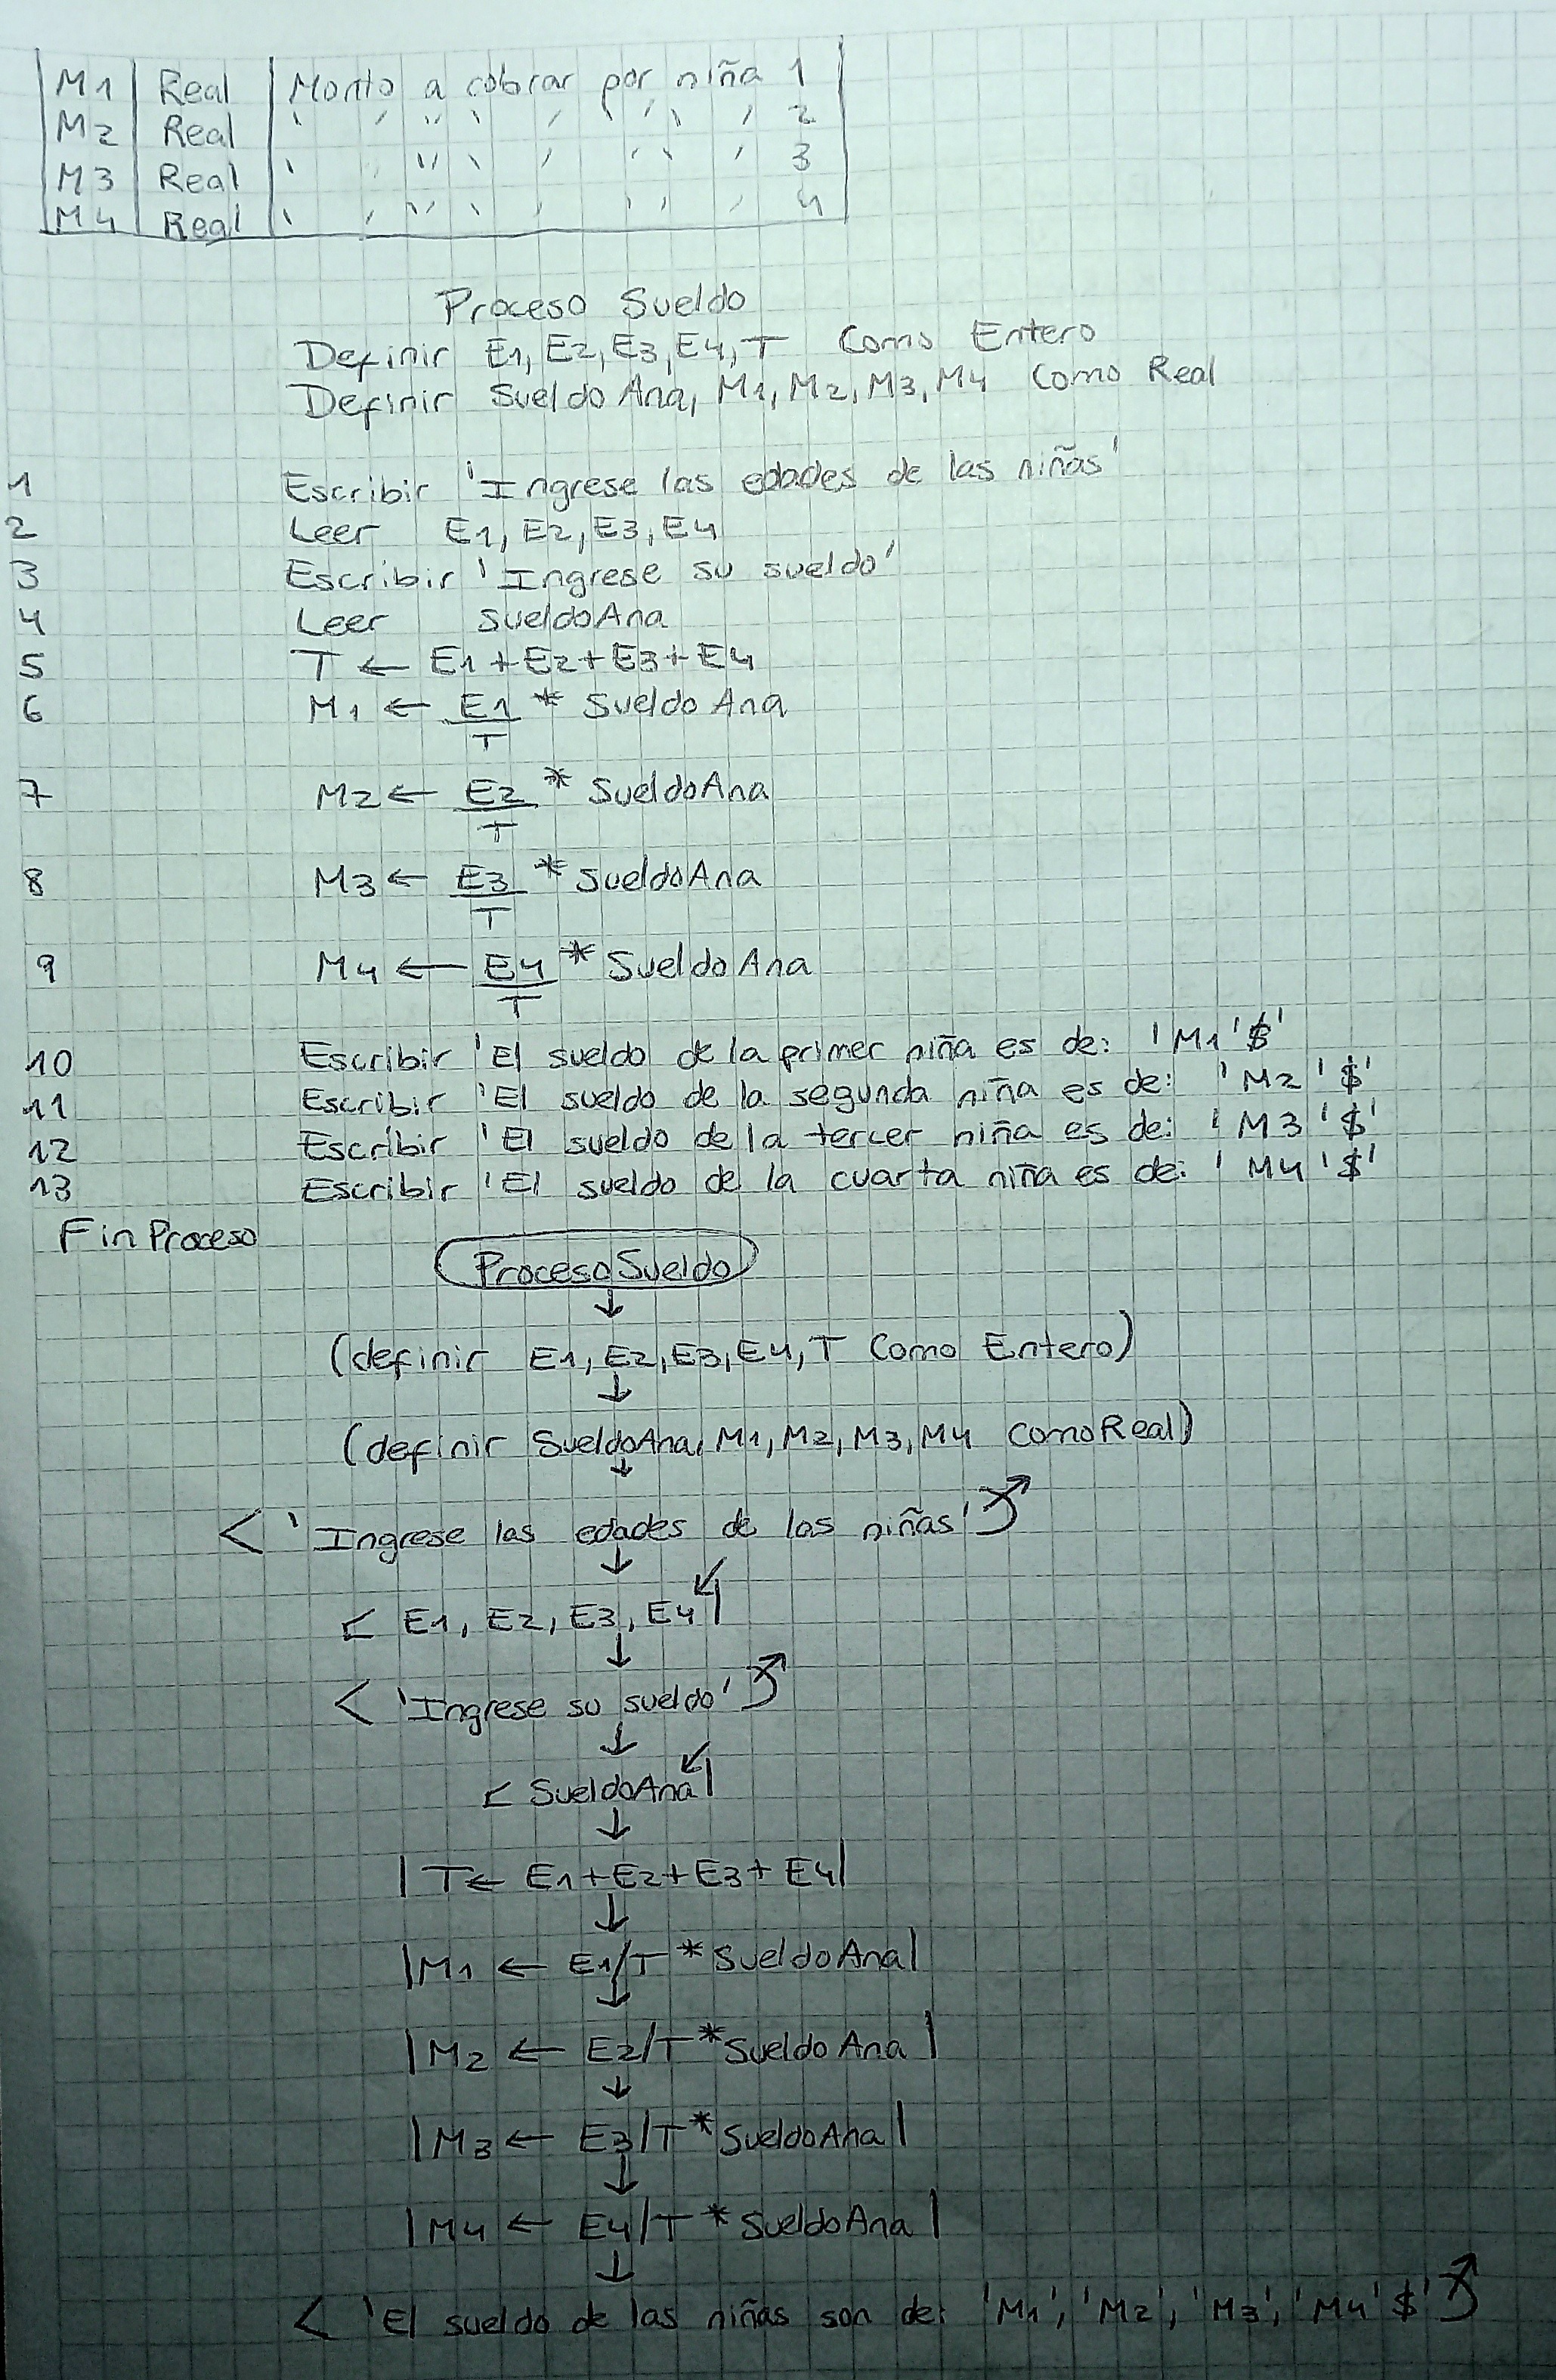 M1 | Real | Monto a cobrar por niña 1
M2 | Real | " " " " " " " 2
M3 | Real | " " " " " " 3
M4 | Real | " " " " " " " 4
Proceso Sueldo
Definir E1, E2, E3, E4, T Como Entero
Definir Sueldo Ana, M1, M2, M3, M4 como Real
1 Escribir 'Ingrese las edades de las niñas'
2 Leer E1, E2, E3, E4
3 Escribir 'Ingrese su sueldo'
4 Leer sueldoAna
5 T ← E1+E2+E3+E4
6 M1 ← E1/T * Sueldo Ana
7 M2 ← E2/T * SueldoAna
8 M3 ← E3/T * SueldoAna
9 M4 ← E4/T * Sueldo Ana
10 Escribir 'El sueldo de la primer niña es de: ' M1 '$'
11 Escribir 'El sueldo de la segunda niña es de: ' M2 '$'
12 Escribir 'El sueldo de la tercer niña es de: ' M3 '$'
13 Escribir 'El sueldo de la cuarta niña es de: ' M4 '$'
Fin Proceso
Proceso Sueldo
↓
(definir E1, E2, E3, E4, T Como Entero)
↓
(definir SueldoAna, M1, M2, M3, M4 como Real)
↓
< 'Ingrese las edades de las niñas'
↓
< E1, E2, E3, E4 |
↓
< 'Ingrese su sueldo'
↓
< SueldoAna |
↓
| T ← E1+E2+E3+E4 |
↓
| M1 ← E1/T * SueldoAna |
↓
| M2 ← E2/T * Sueldo Ana |
↓
| M3 ← E3/T * SueldoAna |
↓
| M4 ← E4/T * SueldoAna |
↓
< 'El sueldo de las niñas son de: 'M1', 'M2', 'M3', 'M4' $'